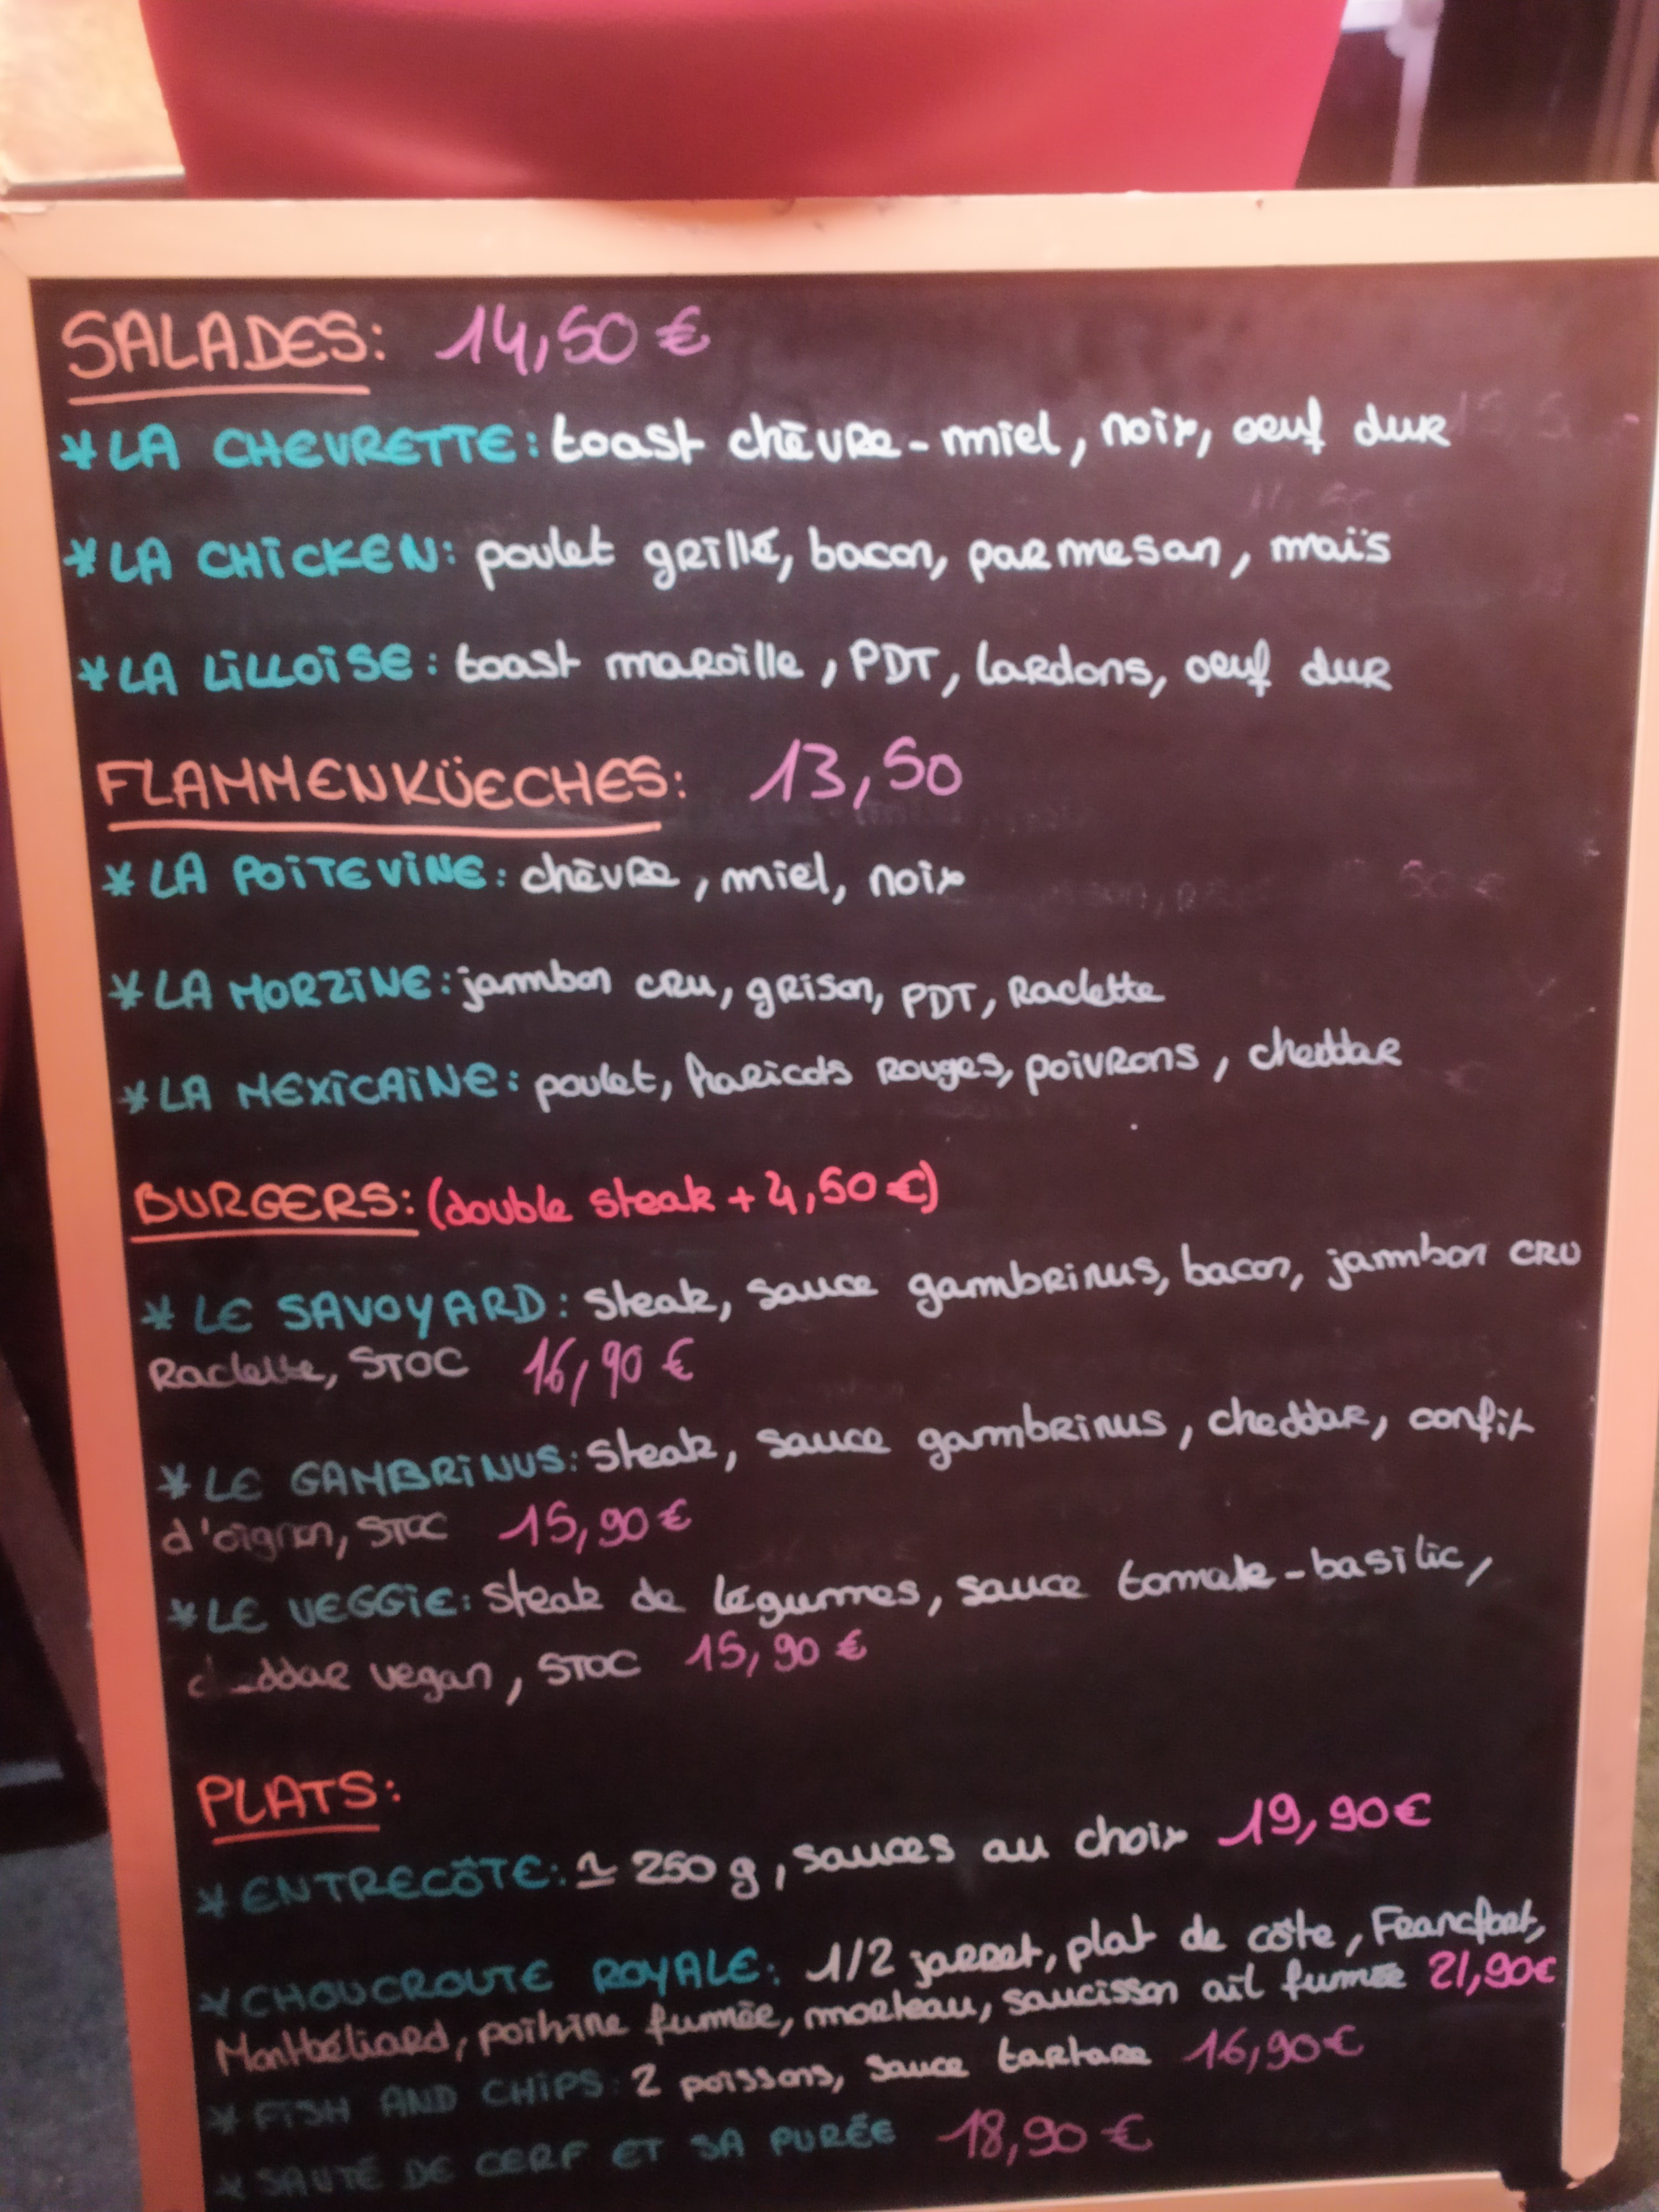 SALADES: 14,50 €
* LA CHEVRETTE: toast chèvre-miel, noix, oeuf dur
* LA CHICKEN: poulet grillé, bacon, parmesan, maïs
* LA LILLOISE: toast maroille, PDT, lardons, oeuf dur
FLAMMENKÜECHES: 13,50
* LA POITEVINE: chèvre, miel, noix
* LA MORZINE: jambon cru, grison, PDT, Raclette
* LA MEXICAINE: poulet, haricots rouges, poivrons, cheddar
BURGERS: (double steak + 4,50 €)
* LE SAVOYARD: steak, sauce gambrinus, bacon, jambon cru
Raclette, STOC 16,90 €
* LE GAMBRINUS: steak, sauce gambrinus, cheddar, confit
d'oignon, STOC 15,90 €
* LE VEGGIE: steak de légumes, sauce tomate-basilic,
cheddar vegan, STOC 15,90 €
PLATS:
* ENTRECÔTE: ≃ 250 g, sauces au choix 19,90 €
* CHOUCROUTE ROYALE: 1/2 jarret, plat de côte, Francfort,
Montbéliard, poitrine fumée, morteau, saucisson ail fumée 21,90€
* FISH AND CHIPS: 2 poissons, sauce tartare 16,90€
* SAUTÉ DE CERF ET SA PURÉE 18,90 €